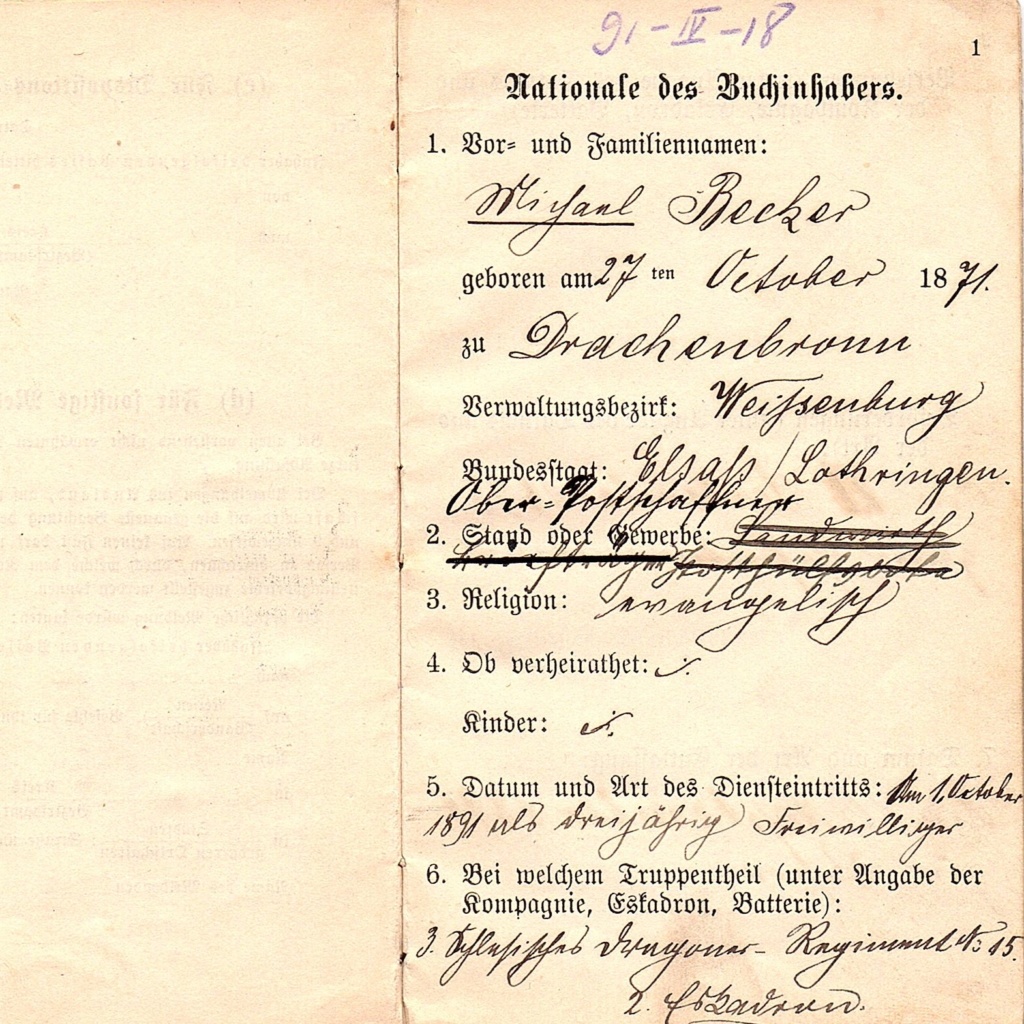 91-IV-18
1
Nationale des Buchinhabers.
1. Vor= und Familiennamen:
Michael Becker
geboren am 27 ten October 1871.
zu Drachenbronn
Verwaltungsbezirk: Weißenburg
Bundesstaat: Elsaß/Lothringen.
Ober=Postschaffner
2. Stand oder Gewerbe: Landwirth
Posthülfsbote
3. Religion: evangelisch
4. Ob verheirathet: ./.
Kinder: ./.
5. Datum und Art des Diensteintritts: Am 1. October
1891 als dreijährig Freiwilliger
6. Bei welchem Truppentheil (unter Angabe der
Kompagnie, Eskadron, Batterie):
3. Schlesisches Dragoner-Regiment No 15.
2. Eskadron.